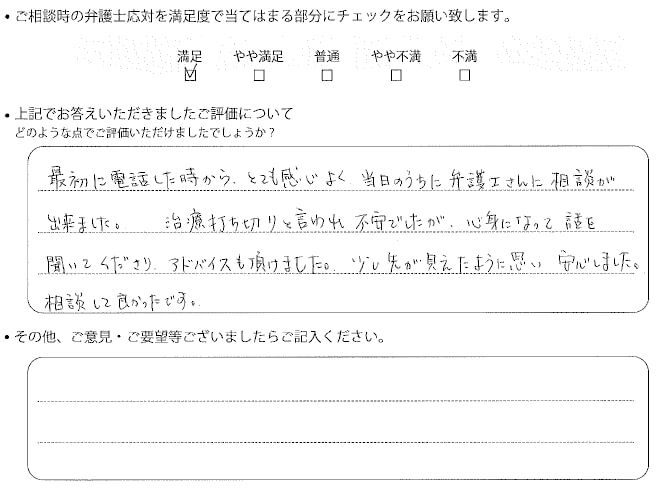 • ご相談時の弁護士応対を満足度で当てはまる部分にチェックをお願い致します。
満足 やや満足 普通 やや不満 不満
☑ □ □ □ □
• 上記でお答えいただきましたご評価について
どのような点でご評価いただけましたでしょうか？
最初に電話した時から、とても感じよく 当日のうちに弁護士さんに相談が
出来ました。 治療打ち切りと言われ 不安でしたが、心身になって 話を
聞いてくださり、アドバイスも頂けました。少し先が見えたように思い 安心しました。
相談して良かったです。
• その他、ご意見・ご要望等ございましたらご記入ください。